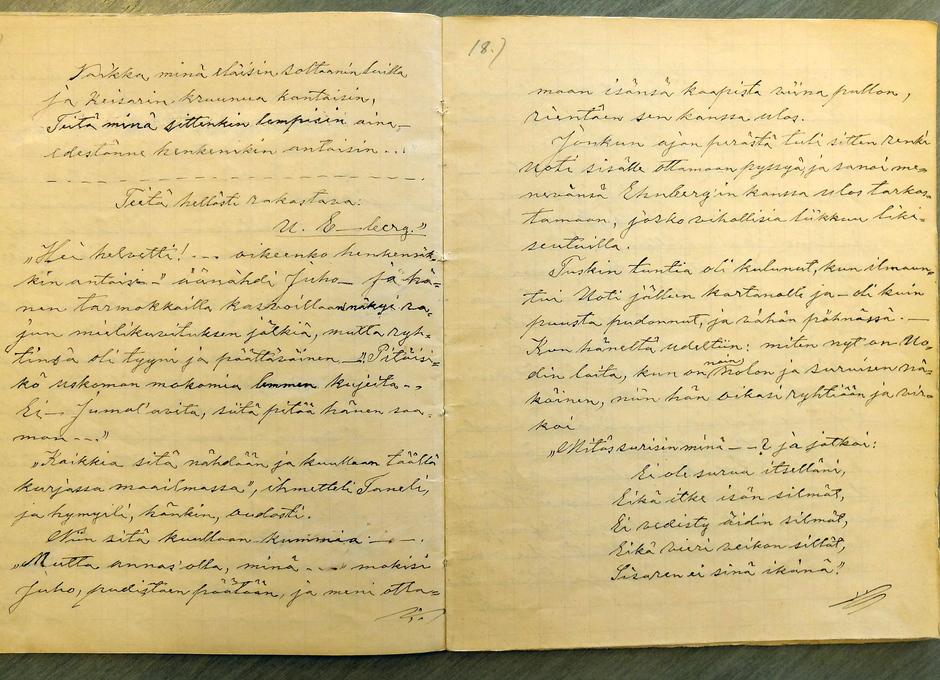 Vaikka minä eläisin soltaanin tavilla
ja Keisarin kruunua kantaisin,
Teitä minä sittenkin lempisin aina,—
edestänne henkenikin antaisin...
Teitä hellästi rakastava:
U. E—berg."
„Hei helvetti! — .. oikeenko henkensäk-
kin antaisi—" äänähdi Juho— ja hä-
nen tarmokkailla kasvoillaan näkyi ra-
jun mielikuvituksen jälkiä, mutta ryh-
tinsä oli tyyni ja päättäväinen —„Pitäisi-
kö uskoman mokomia lemmen kujeita --
Ei— Jumal'avita, siitä pitää hänen saa-
man ---"
„Kaikkia sitä nähdään ja kuullaan täällä
kurjassa maailmassa", ihmetteli Taneli,
ja hymyili, hänkin, oudosti.
Niin sitä kuullaan kummia — —.
„Mutta annas'olla, minä ..." mokisi
Juho, pudistaen päätään, ja meni otta-
18.)
maan isänsä kaapista viina pullon,
rientäen sen kanssa ulos.
Jonkun ajan perästä tuli sitten renki
Uoti sisälle ottamaan pyssyä, ja sanoi me-
nevänsä Ehnbergin kanssa ulos tarkas-
tamaan, josko vihollisia liikkuu liki-
seutuilla.
Tuskin tuntia oli kulunut, kun ilmaan-
tui Uoti jälleen kartanolle ja—oli kuin
puusta pudonnut, ja vähän pöhnässä. —
Kun häneltä udeltiin: miten nyt on Uo-
din laita, kun on noin nolon ja suruisen nä-
köinen, niin hän oikasi ryhtiään ja vir-
koi
„Mitäs surisin minä — —? ja jatkoi:
Ei ole surua itselläni,
Eikä itke isän silmät,
Ei vedisty äidin silmät,
Eikä vieri veikon silldt,
Sisaren ei sinä ikänä."